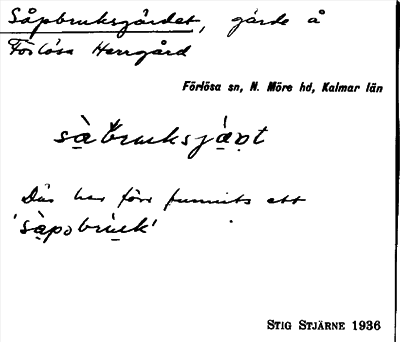 Såpbruksgärdet, gärde å
Förlösa Herrgård
Förlösa sn, N. Möre hd, Kalmar län
Där har förr funnits ett
STIG STJÄRNE 1936